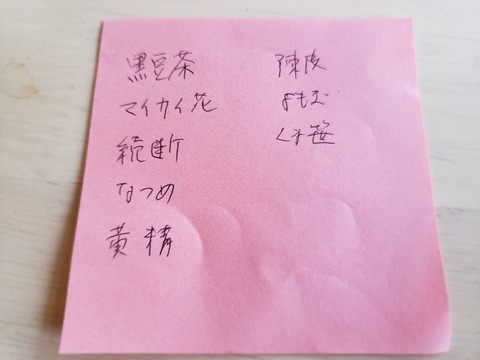 黒豆茶
マイカイ花
続断
なつめ
黄精
陳皮
よもぎ
くま笹